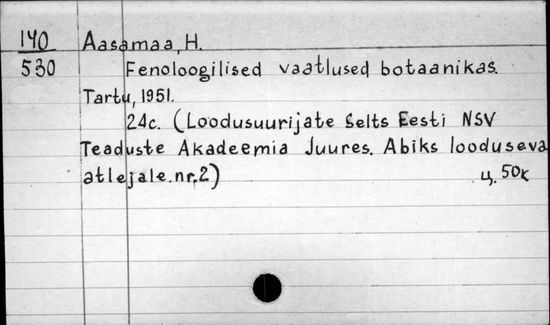 140 Aasamaa, H.
530 Fenoloogilised vaatlused botaanikas.
Tartu, 1951.
24c. (Loodusuurijate Selts Eesti NSV
Teaduste Akadeemia Juures. Abiks looduseva
atlejale. nr. 2) ц. 50к